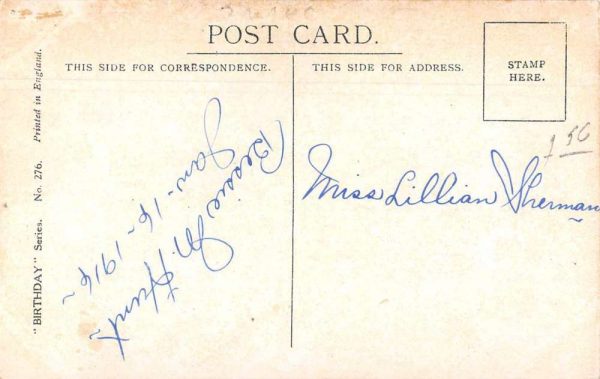 POST CARD.
THIS SIDE FOR CORRESPONDENCE.
THIS SIDE FOR ADDRESS.
STAMP
HERE.
"BIRTHDAY" Series. No. 276. Printed in England.
Bessie M. Hunt
Jan-16-1916
Miss Lillian Sherman
1 50